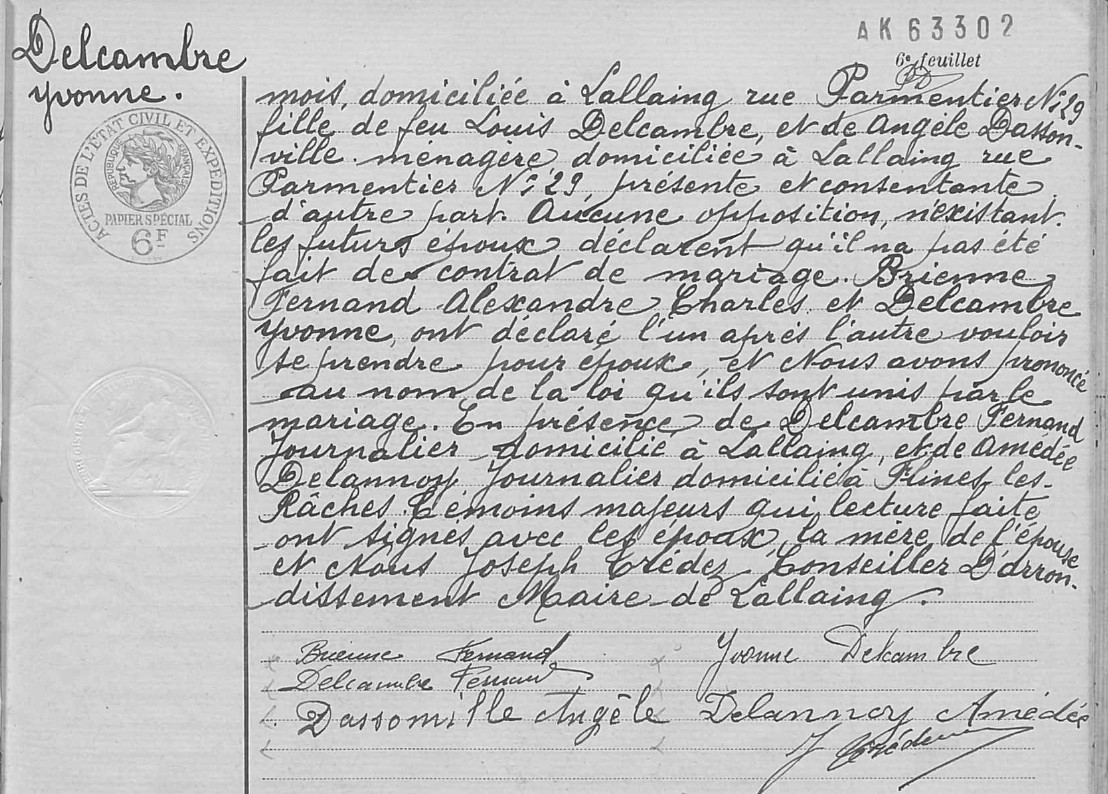 AK63302
6e feuillet
Delcambre
Yvonne.
ACTES DE L'ETAT CIVIL ET EXPEDITIONS
REPUBLIQUE FRANÇAISE
PAPIER SPÉCIAL
6F
mois, domiciliée à Lallaing rue Parmentier N: 29
fille de feu Louis Delcambre, et de Angèle Dasson-
ville ménagère domiciliée à Lallaing rue
Parmentier N: 29, présente et consentante
d'autre part. Aucune opposition, n'existant.
les futurs époux déclarent qu'il n'a pas été
fait de contrat de mariage. Brienne
Fernand Alexandre Charles. et Delcambre
Yvonne, ont déclaré l'un après l'autre vouloir
se prendre pour époux, et Nous avons prononcé
au nom de la loi qu'ils sont unis par le
mariage. En présence de Delcambre Fernand
Journalier domicilié à Lallaing, et de Amédée
Delannoy Journalier domicilié à Flines les-
Râches. Témoins majeurs qui lecture faite
ont signés avec les époux, la mère de l'épouse
et Nous Joseph Trédez Conseiller D'arron-
dissement Maire de Lallaing.
Brienne Fernand Yvonne Delcambre
Delcambre Fernand
Dassonville Angèle Delannoy Amédée
J Trédez